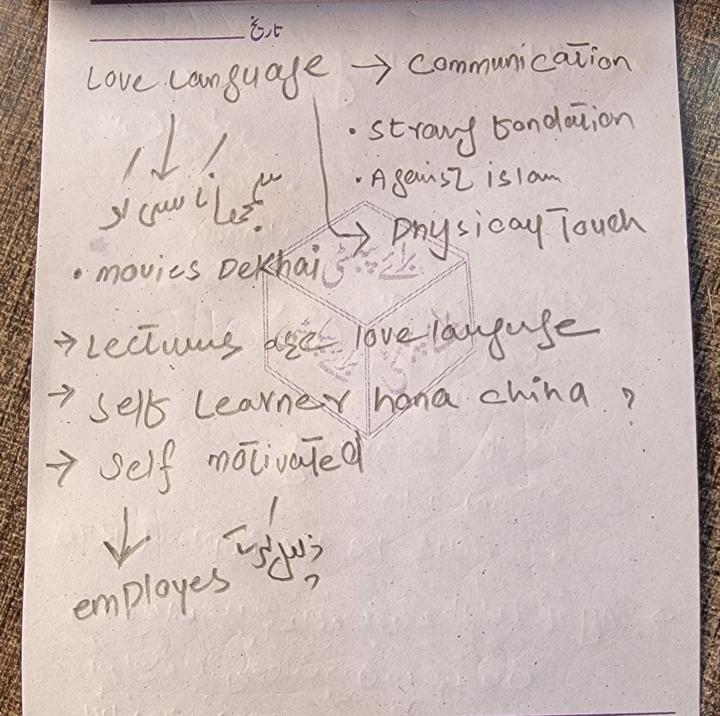 تاریخ
Love Language → Communication
• Strong fondation
• Against islam
→ Physicay Touch
• movies Dekhai
→ Lectures are love languge
→ Self Learner hona china ?
→ Self motivated
employes